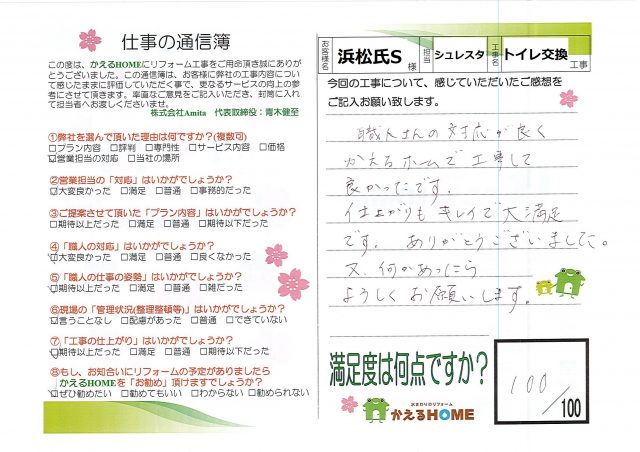 仕事の通信簿
この度は、かえるHOMEにリフォーム工事をご用命頂き誠にありが
とうございました。この通信簿は、お客様に弊社の工事内容につい
て感じたままに評価していただく事で、更なるサービスの向上の参
考にさせて頂きます。率直なご意見をご記入いただき、封筒に入れ
て担当者へお渡しくださいませ。
株式会社Amita 代表取締役：青木健至
①弊社を選んで頂いた理由は何ですか?(複数可)
□プラン内容 □評判 □専門性 □サービス内容 □価格
☑営業担当の対応 □当社の場所
②営業担当の「対応」はいかがでしょうか?
☑大変良かった □満足 □普通 □事務的だった
③ご提案させて頂いた「プラン内容」はいかがでしょうか?
□期待以上だった □満足 □普通 □期待以下だった
④「職人の対応」はいかがでしょうか?
☑大変良かった □満足 □普通 □良くなかった
⑤「職人の仕事の姿勢」はいかがでしょうか?
☑期待以上だった □満足 □普通 □雑だった
⑥現場の「管理状況(整理整頓等)」はいかがでしょうか?
☑言うことなし □配慮があった □普通 □できていない
⑦「工事の仕上がり」はいかがでしょうか?
☑期待以上だった □満足 □普通 □期待以下だった
⑧もし、お知合いにリフォームの予定がありましたら
かえるHOMEを「お勧め」頂けますでしょうか?
☑ぜひ勧めたい □勧めてもいい □わからない □勧められない
お客様名 浜松氏S 様 担当 シュレスタ 工事名 トイレ交換 工事
今回の工事について、感じていただいたご感想を
ご記入お願い致します。
職人さんの対応が良く
かえるホームで工事して
良かったです。
仕上がりもキレイで大満足
です。ありがとうございました。
又、何かあったら
よろしくお願いします。
満足度は何点ですか?
100/100
水まわりのリフォーム
かえるHOME